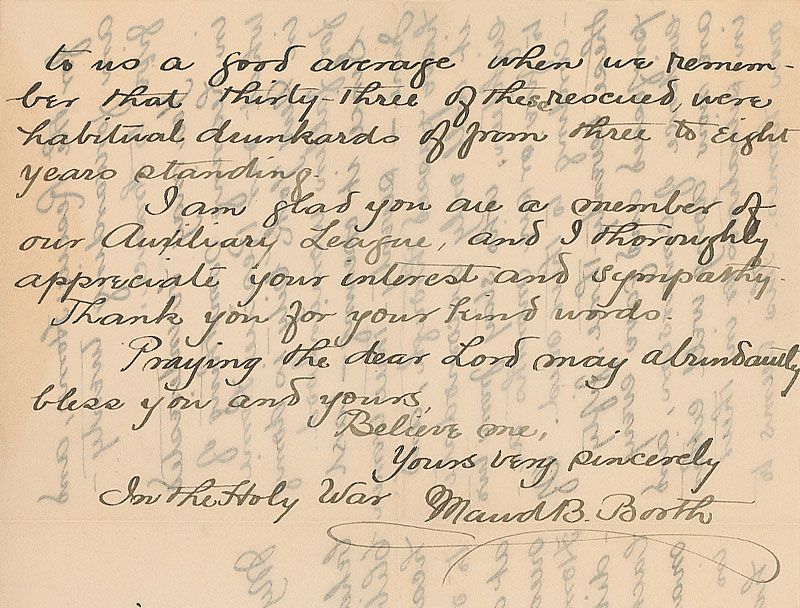 to us a good average when we remem-
ber that thirty-three of these rescued, were
habitual drunkards of from three to eight
years standing.
I am glad you are a member of
our Auxiliary League, and I thoroughly
appreciate your interest and sympathy.
Thank you for your kind words.
Praying the dear Lord may abundantly
bless you and yours,
Believe me,
Yours very sincerely
In the Holy War Maud B. Booth